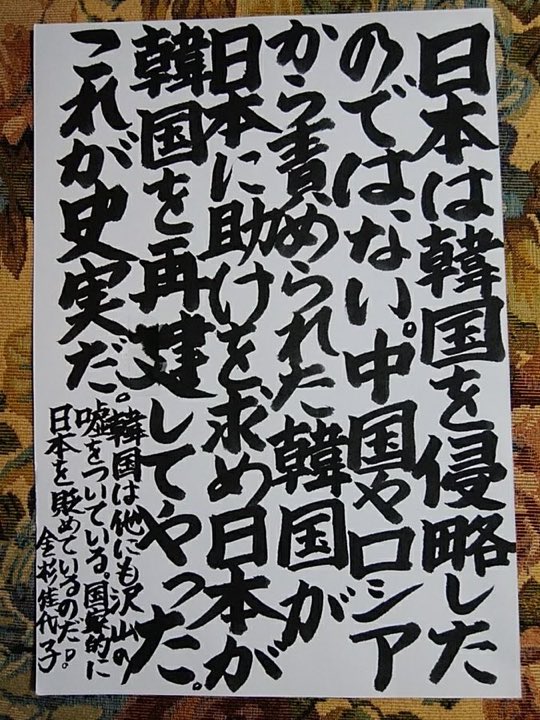 日本は韓国を侵略した
のではない。中国やロシア
から責められた韓国が
日本に助けを求め日本が
韓国を再建してやった。
これが史実だ。
韓国は他にも沢山の
嘘をついている。国家的に
日本を貶めているのだ。
金杉佳代子